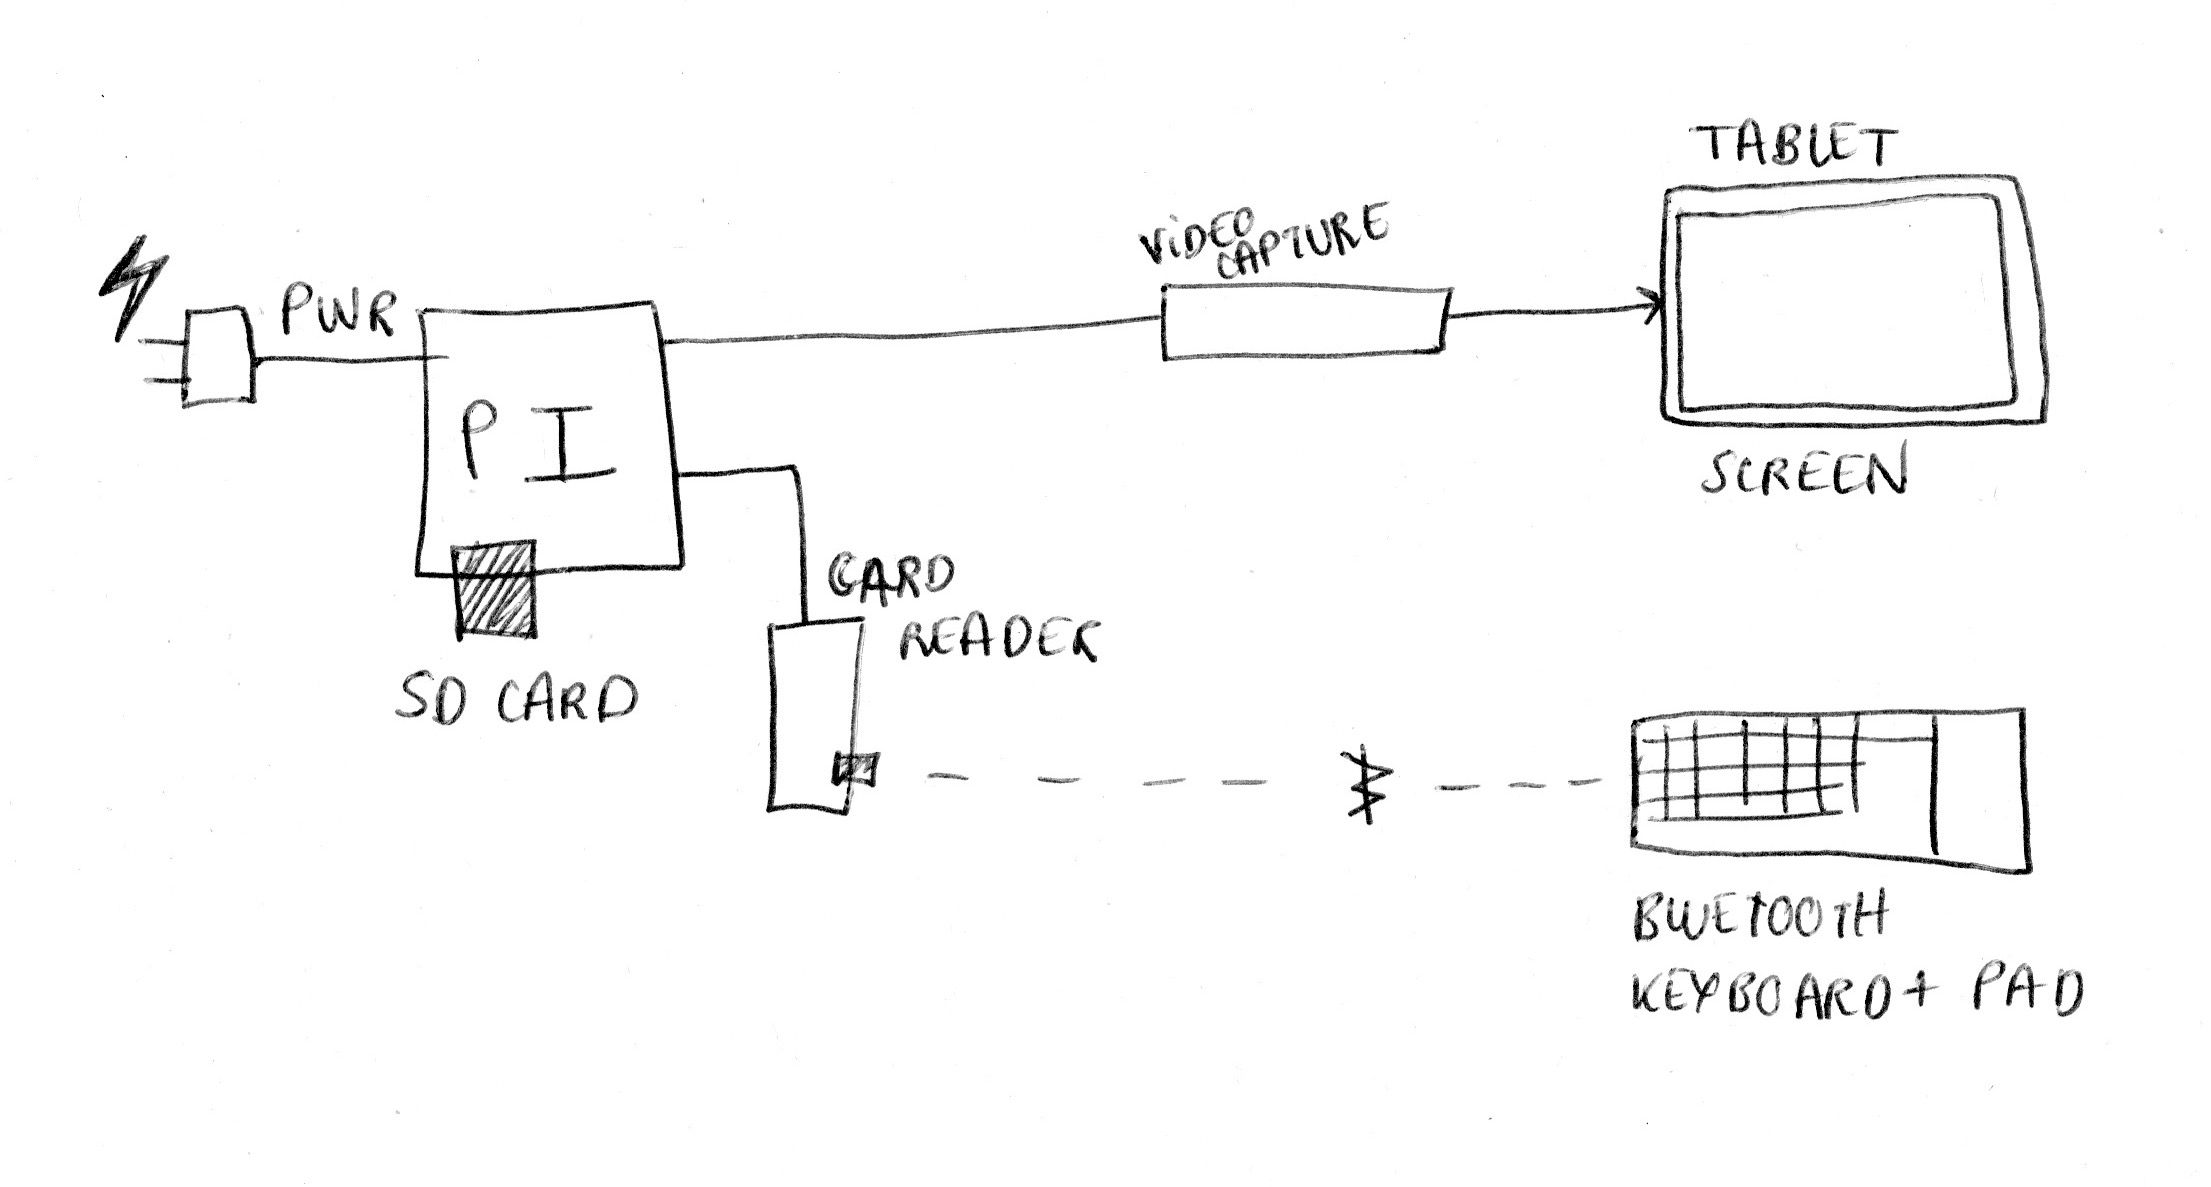 TABLET
VIDEO
CAPTURE
PWR
PI
SCREEN
CARD
READER
SD CARD
BLUETOOTH
KEYBOARD + PAD